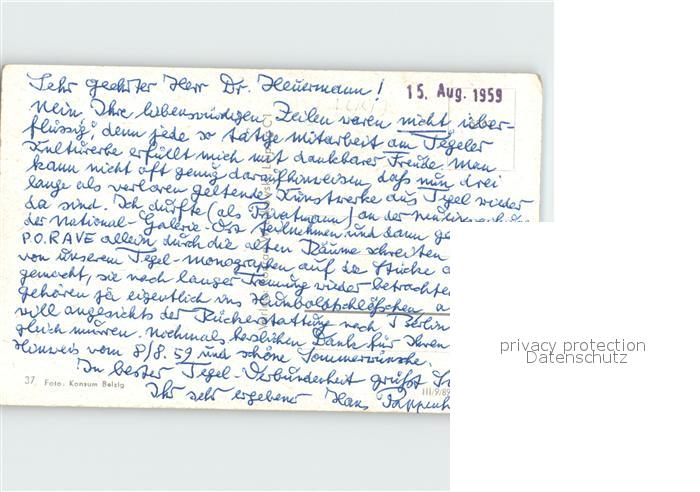 Sehr geehrter Herr Dr. Heuermann!
15. Aug. 1959
Nein, Ihre liebenswürdigen Zeilen waren nicht über-
flüssig, denn jede so tätige Mitarbeit am Tegeler
Kulturerbe erfüllt mich mit dankbarer Freude. Man
kann nicht oft genug daraufhinweisen, daß nun drei
lange als verloren geltende Kunstwerke aus Tegel wieder
da sind. Ich durfte (als Privatmann) an der
der National-Galerie-Ost teilnehmen und dann
P.O. RAVE allein, durch die alten Räume schreiten
von unserem Tegel-Monographen auf die Stücke
gemacht, sie nach langer Trennung wieder betrachten
gehören ja eigentlich ins Humboldtschlößchen
will angesichts der Rückerstattung nach Berlin
gleich murren. Nochmals herzlichen Dank für Ihren
Hinweis vom 8/8.59 und schöne Sommerwünsche.
In bester Tegel-Verbundenheit grüßt
Ihr sehr ergebener Hans
37 Foto: Konsum Belzig
III/9/89
privacy protection
Datenschutz